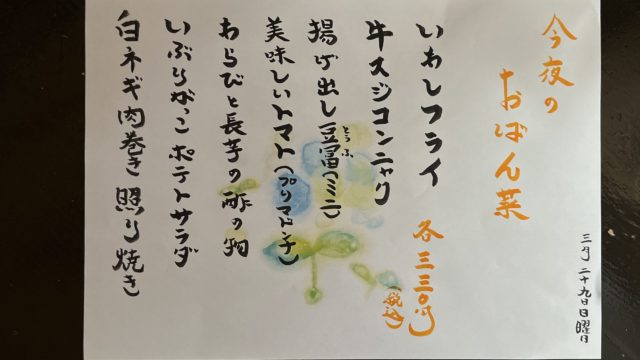 三月二十九日日曜日
今夜の
おばん菜
各三三〇円
(税込)
いわしフライ
牛スジコンニャク
揚げ出し豆富(ミニ)
とうふ
美味しいトマト(プリマドンナ)
わらびと長芋の酢の物
いぶりがっこポテトサラダ
白ネギ肉巻き照り焼き